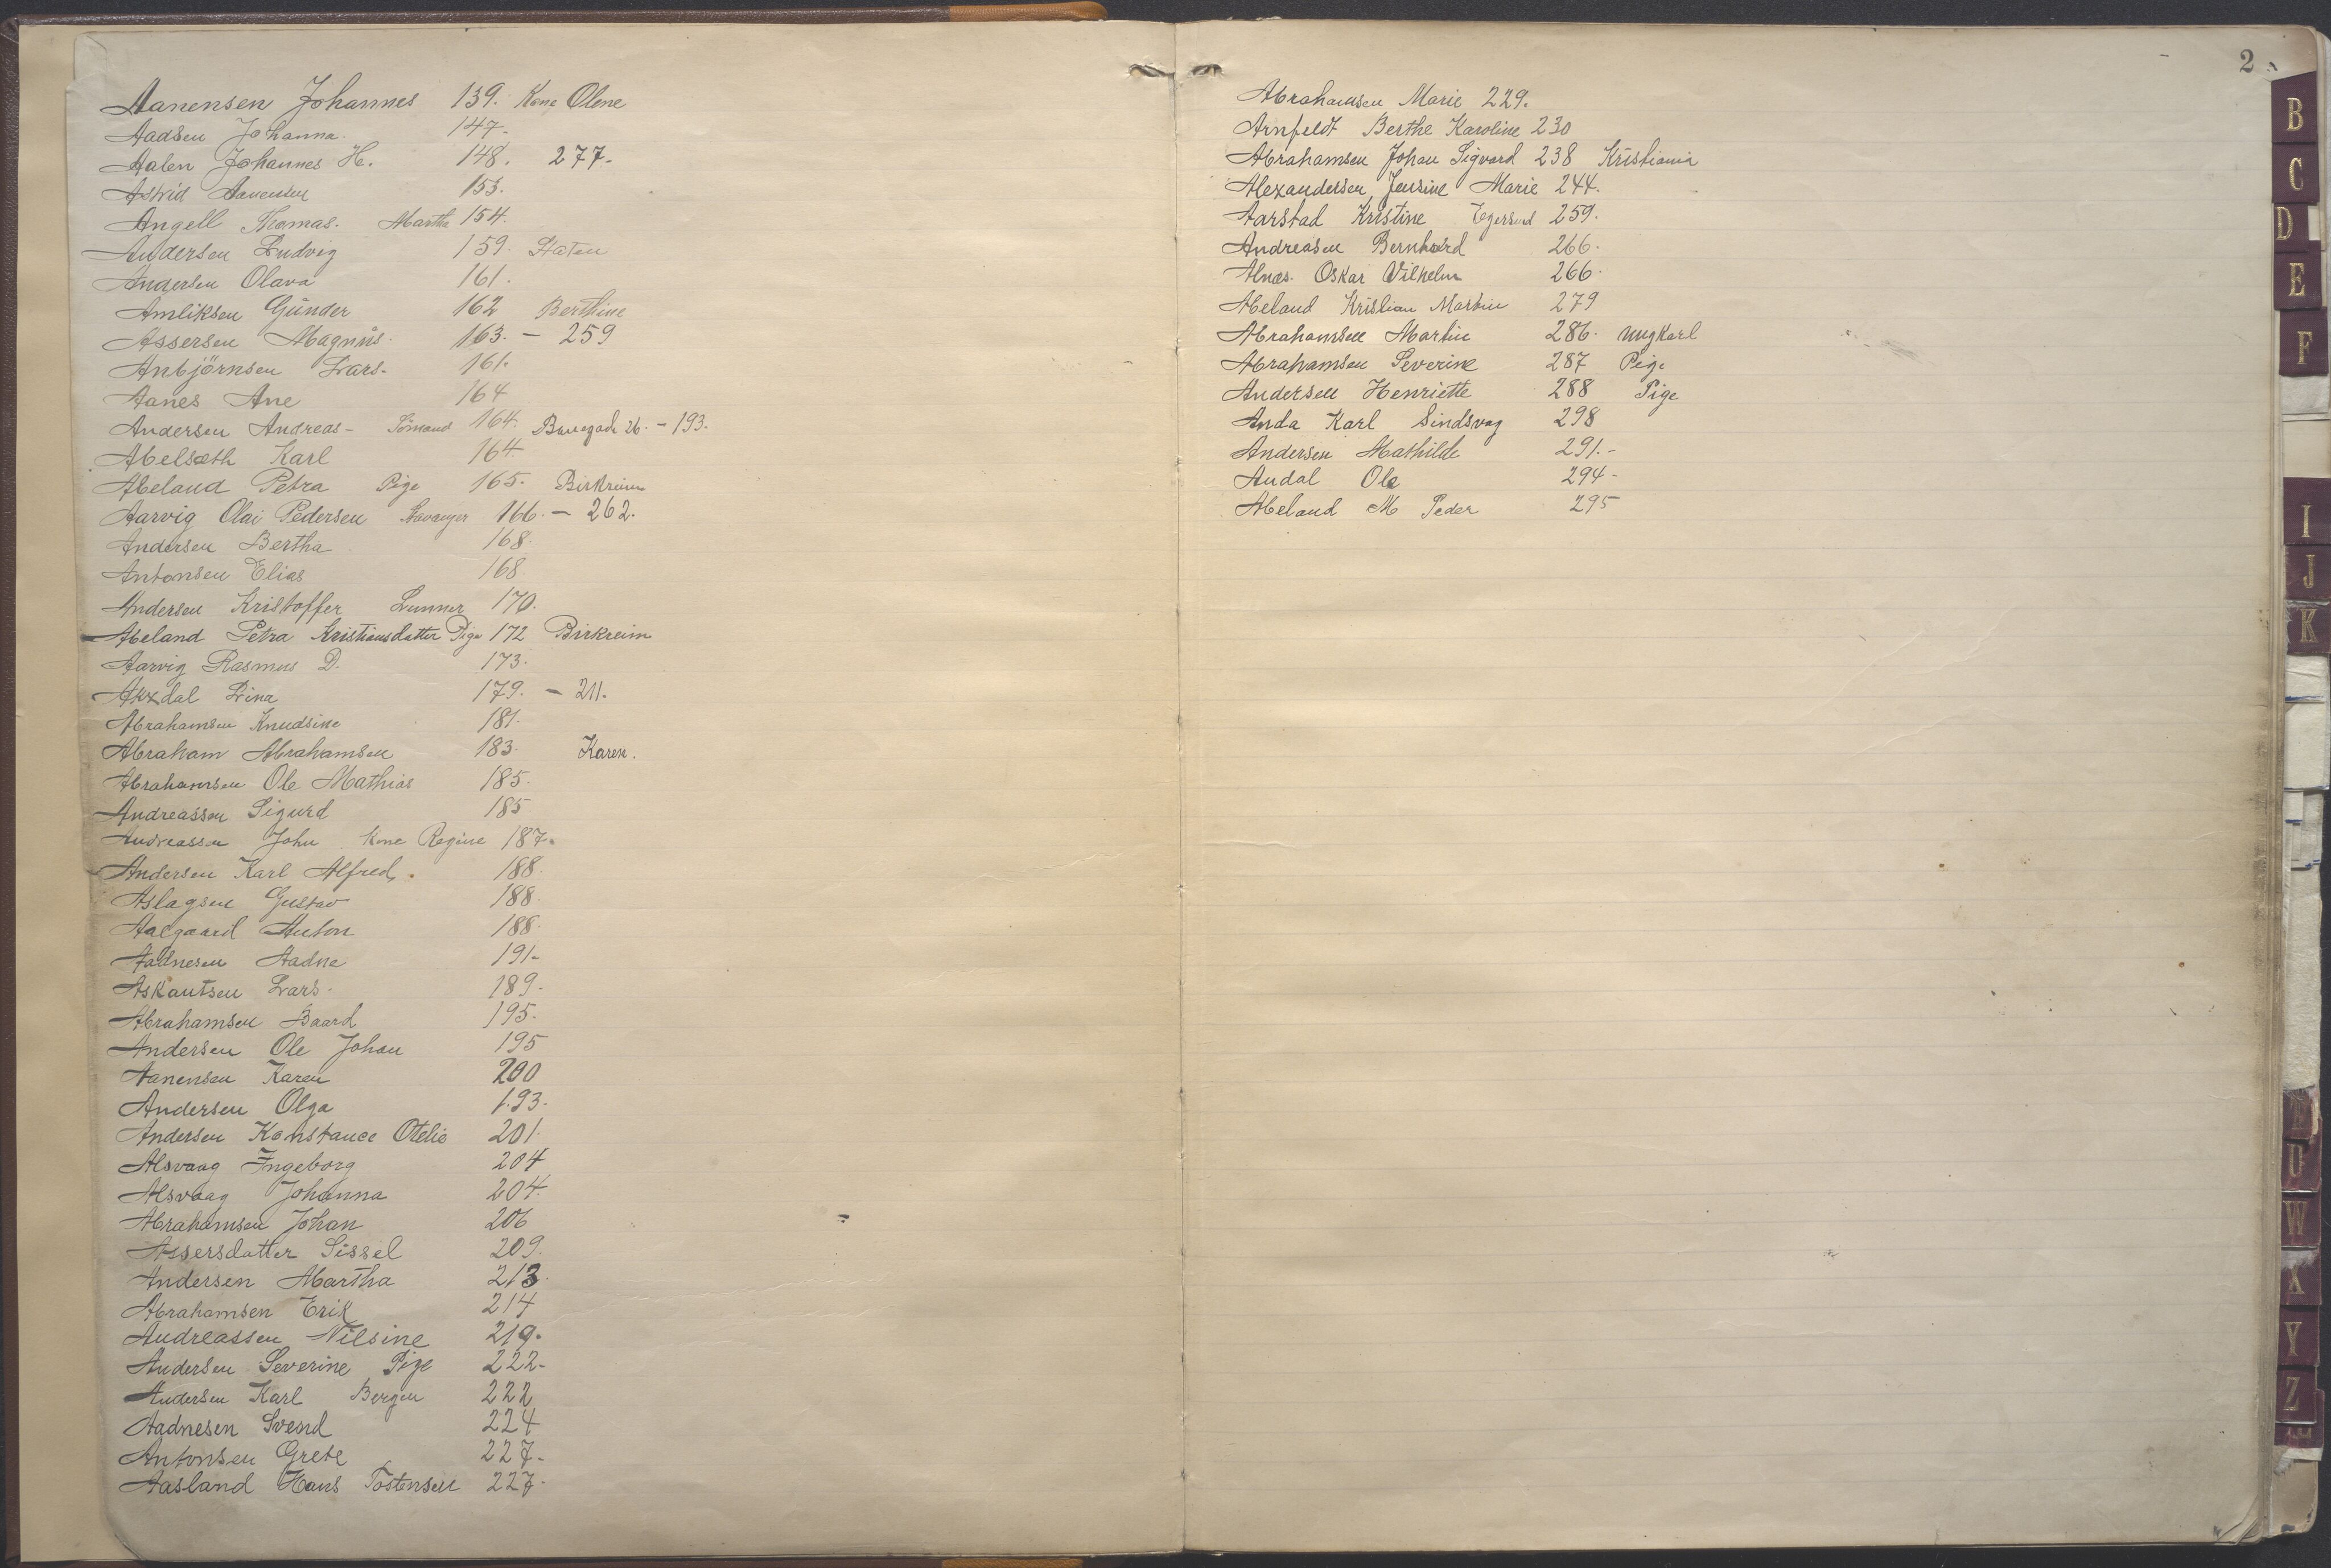 Aanensen Johannes 139. Kone Olene
Aadsen Johanna. 147.
Aalen Johannes H. 148. 277.
Astrid Aanensen 153.
Angell Thomas. Martha 154.
Andersen Ludvig 159.
Andersen Olava 161.
Amliksen Günder 162 Berthine
Assersen Magnus. 163. – 259
Anbjörnsen Lars. 161.
Aanes Ane 164
Andersen Andreas – Sömand 164. 26. – 193.
Abelsæth Karl 164
Abeland Petra Pige 165. Birkreim
Aarvig Olai Pedersen Stavanger 166. – 262.
Andersen Bertha 168.
Antonsen Elias 168
Andersen Kristoffer Lunner 170.
Abeland Petra Kristiansdatter Pige 172 Birkreim
Aarvig Rasmus D. 173.
Lina 179. – 211.
Abrahamsen Knudsine 181.
Abraham Abrahamsen 183. Karen.
Abrahamsen Ole Mathias 185.
Andreassen Sigurd 185
Andreassen John Kone Regine 187.
Andersen Karl Alfred. 188
Aslagsen Gustav 188
Aalgaard Anton 188.
Aadnesen Aadne 191.
Askautsen Lars. 189.
Abrahamsen Baard 195.
Andersen Ole Johan 195
Aanensen Karen 200
Andersen Olga 193.
Andersen Konstance Otelie 201.
Alsvaag Ingeborg 204
Alsvaag Johanna 204.
Abrahamsen Johan 206
Assersdatter Sissel 209.
Andersen Martha 213.
Abrahamsen Erik 214
Andreassen Nilsine 219.
Andersen Severine Pige 222.
Andersen Karl Bergen 222
Aadnesen Svend 224
Antonsen Grete 227.
Aasland Hans Tostensen 227.
2
Abrahamsen Marie 229.
Arnfeldt Berthe Karoline 230
Abrahamsen Johan Sigvard 238 Kristiania
Alexandersen Jensine Marie 244.
Aarstad Kristine Egersund 259.
Andreasen Bernhard 266.
Alnæs. Oskar Vilhelm 266.
Abeland Kristian Martin 279
Abrahamsen Martin 286. ungkarl
Abrahamsen Severine 287 Pige
Andersen Henriette 288 Pige
Anda Karl Sindsvag 298
Andersen Mathilde 291.-
Audal Ole 294-
Abeland M Peder 295
B
C
D
E
F
I
J
K
U
W
X
Y
Z